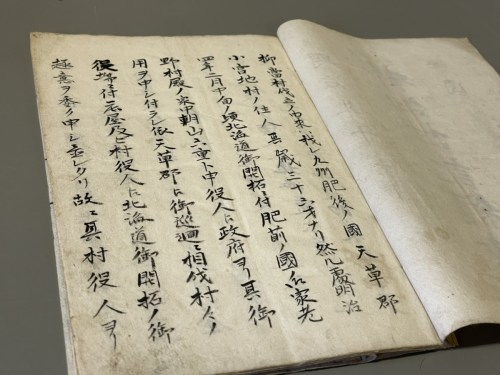 當村成立ノ由来我レ九州肥後ノ國天草郡
小宮地村ノ住人其歳三十六才ナリ然ル處明治
四年二月下旬ノ頃北海道御開拓ニ付肥前ノ國ノ家老
野村殿ノ家中朝山六重ト申役人ニ政府ヨリ其御
用ヲ申シ付ラレ依天草郡ニ御巡廻ニ相成村々ノ
役場ニ付荘屋及ビ村役人ニ北海道御開拓ノ御
趣意ヲ委ク申シレタリ故ニ其村役人ヨリ